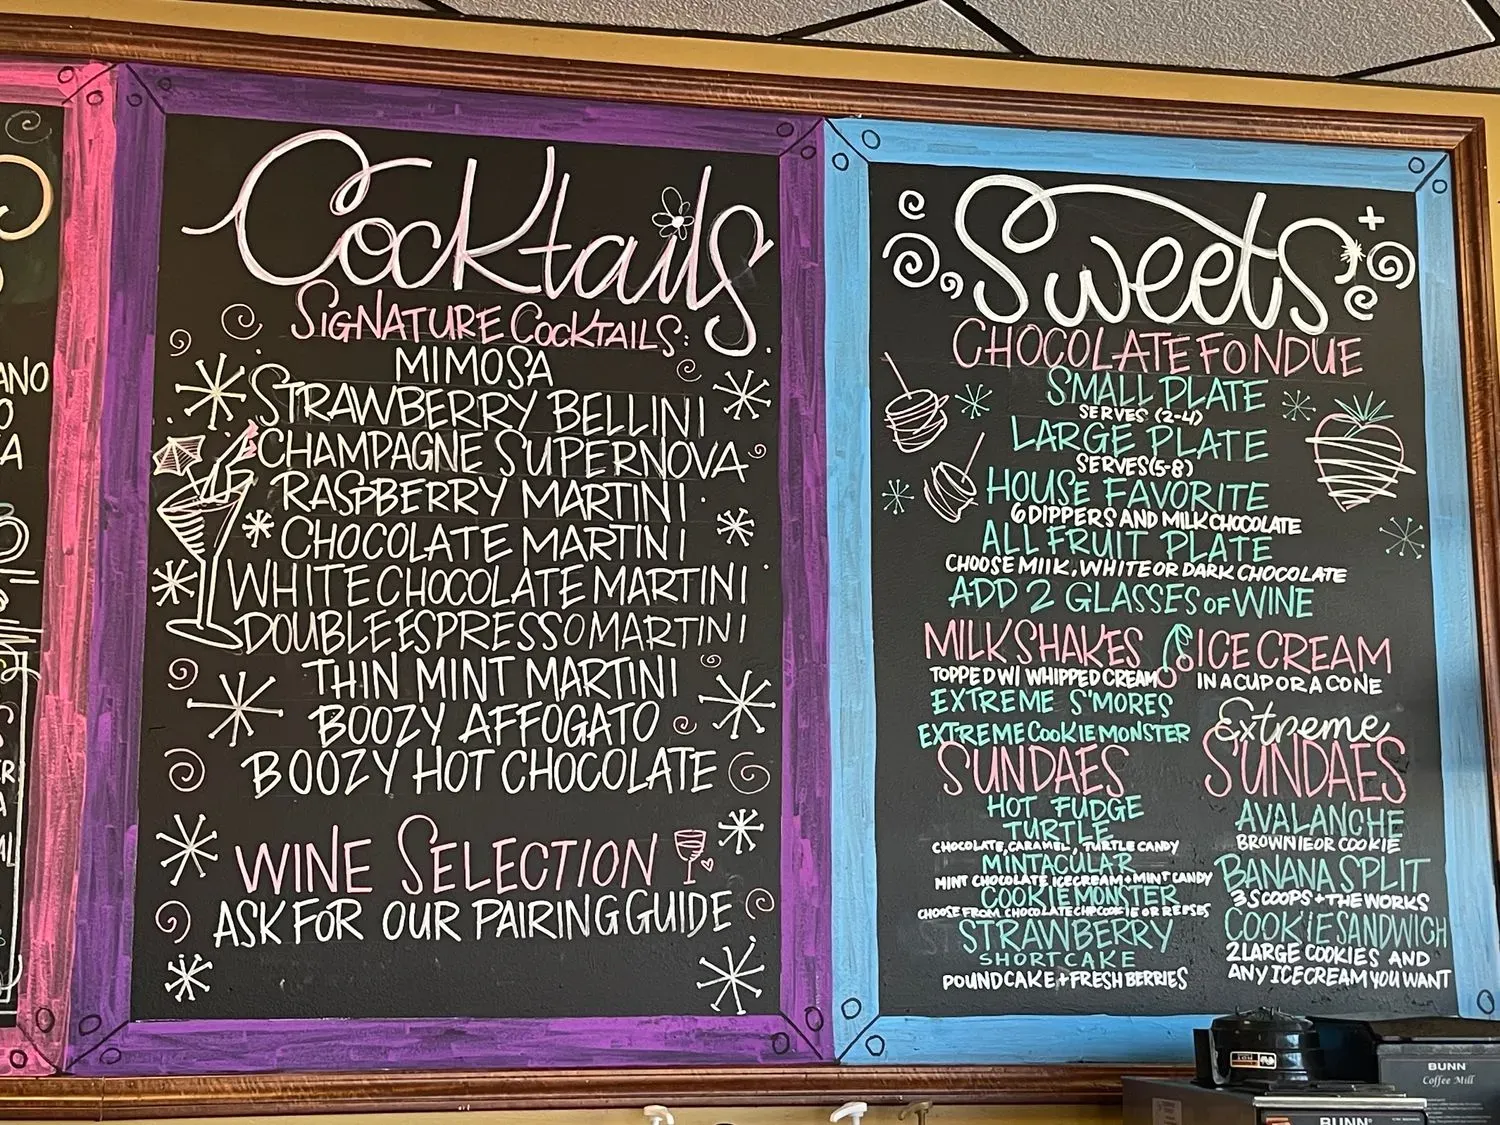 ANO
O
A
Cocktails
SIGNATURE COCKTAILS:
MIMOSA
STRAWBERRY BELLINI
CHAMPAGNE SUPERNOVA
RASPBERRY MARTINI
CHOCOLATE MARTINI
WHITE CHOCOLATE MARTINI
DOUBLE ESPRESSO MARTINI
THIN MINT MARTINI
BOOZY AFFOGATO
BOOZY HOT CHOCOLATE
WINE SELECTION
ASK FOR OUR PAIRING GUIDE
Sweets
CHOCOLATE FONDUE
SMALL PLATE
SERVES (2-4)
LARGE PLATE
SERVES (5-8)
HOUSE FAVORITE
6 DIPPERS AND MILK CHOCOLATE
ALL FRUIT PLATE
CHOOSE MIlK, WHITE OR DARK CHOCOLATE
ADD 2 GLASSES OF WINE
MILKSHAKES
TOPPED W/ WHIPPED CREAM
EXTREME S'MORES
EXTREME COOKIE MONSTER
SUNDAES
HOT FUDGE
TURTLE
CHOCOLATE, CARAMEL, TURTLE CANDY
MINTACULAR
MINT CHOCOLATE ICECREAM + MINT CANDY
COOKIE MONSTER
CHOOSE FROM CHOCOLATE CHP COOKIE OR REESES
STRAWBERRY
SHORTCAKE
POUNDCAKE + FRESH BERRIES
ICE CREAM
IN A CUP OR A CONE
Extreme
SUNDAES
AVALANCHE
BROWNIE OR COOKIE
BANANA SPLIT
3 SCOOPS + THE WORKS
COOKIE SANDWICH
2 LARGE COOKIES AND
ANY ICE CREAM YOU WANT
BUNN
Coffee Mill
BUNN